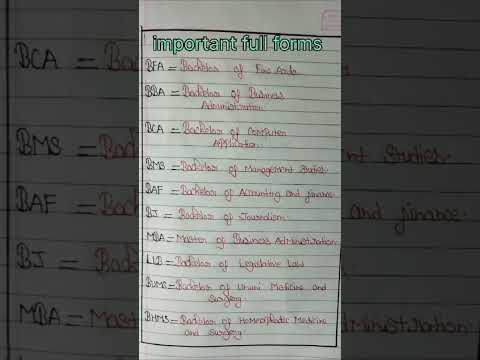 important full forms
BFA = Bachelor of Fine Arts
BBA = Bachelor of Business
Administration
BCA = Bachelor of Computer
Application
BMS = Bachelor of Management Studies
BAF = Bachelor of Accounting and finance
BJ = Bachelor of Journalism
MBA = Master of Business Administration
LLB = Bachelor of Legislative Law
BUMS = Bachelor of Unani Medicine and
Surgery
BHMS = Bachelor of Homeopathic Medicine
and Surgery